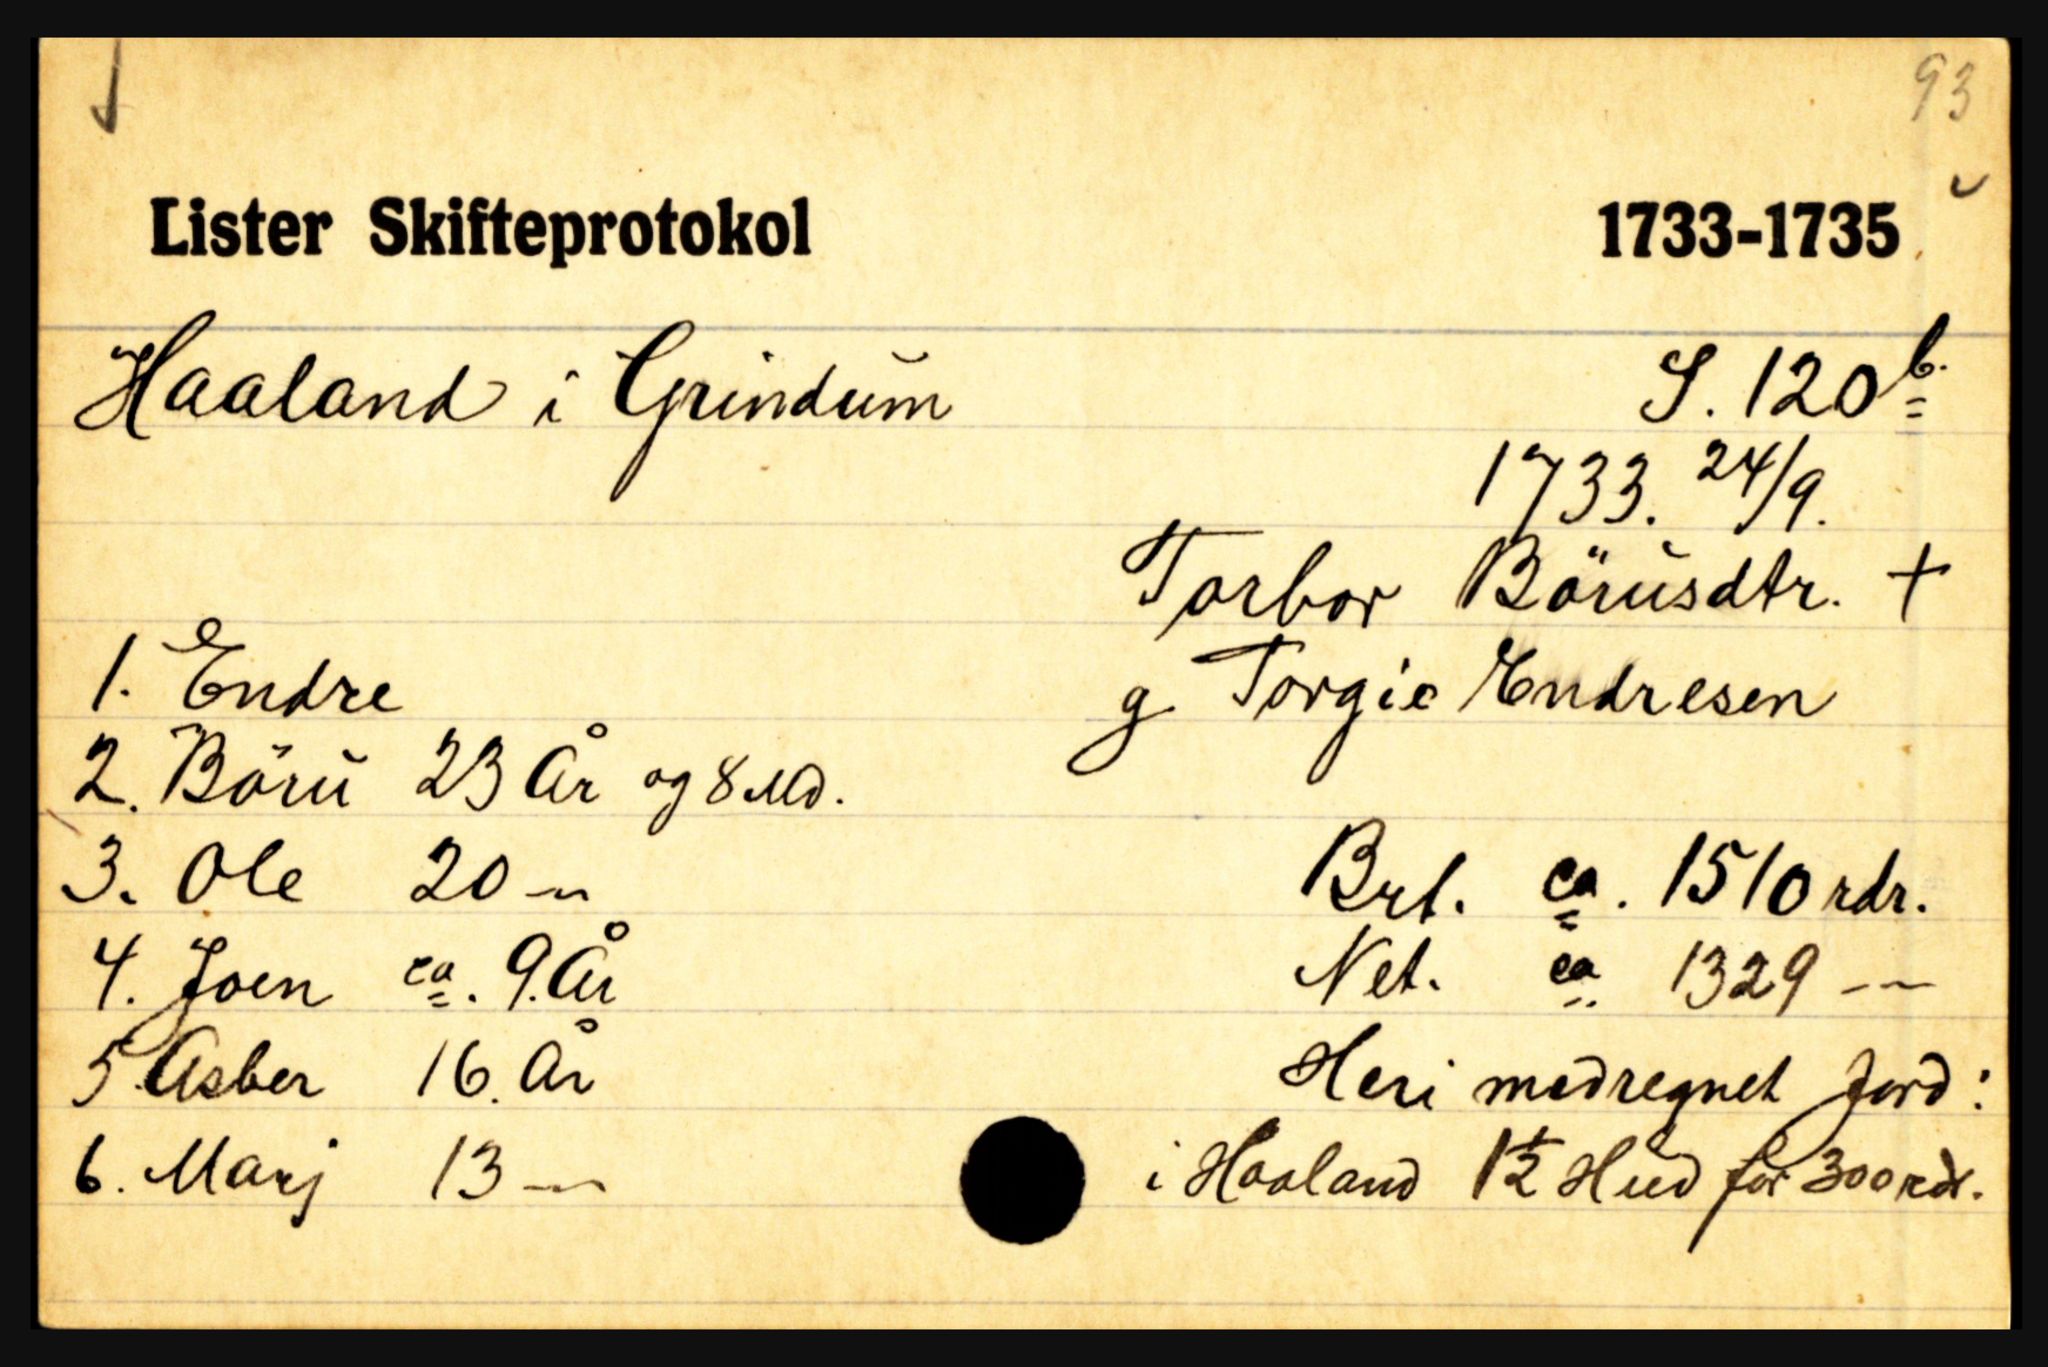 93
Lister Skifteprotokol 1733-1735
Haaland i Grindum S. 120 b.
1733. 24/9.
Torbor Börŭsdtr. +
1. Endre g. Torgie Endresen
2. Börŭ 23 År og 8 Md.
3. Ole 20 —"— Brt. ca. 1510 rdr.
4. Joen ca. 9. År Net. ca 1329 —"—
5. Asber 16. År Heri medregnet Jord:
6. Marj 13 —"— i Haaland 1½ Hud for 300 rdr.